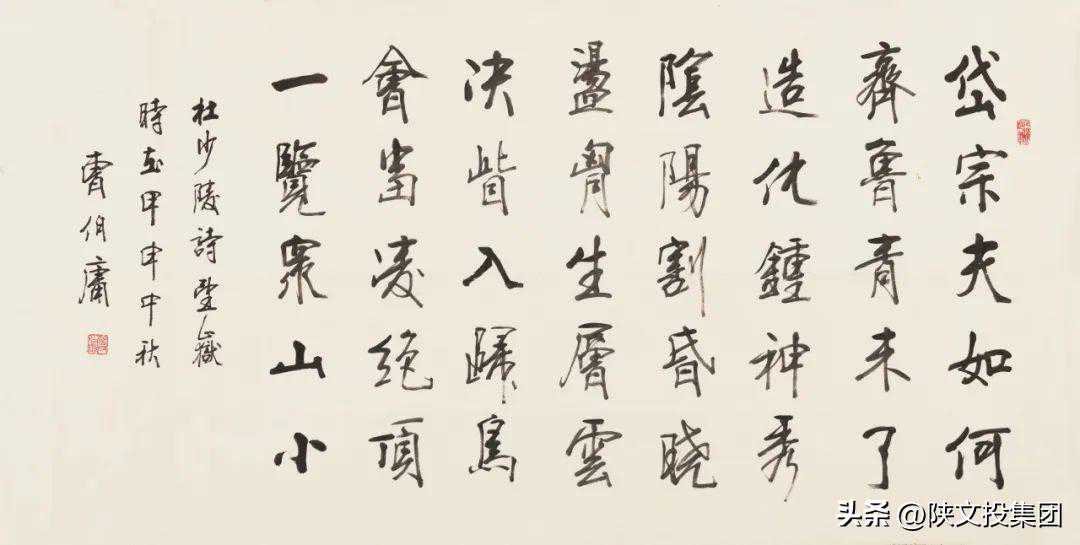 岱宗夫如何
齊魯青未了
造化鍾神秀
陰陽割昏晓
盪胷生層雲
决眥入歸鳥
會當凌絶頂
一覽衆山小
杜少陵詩望嶽
時在甲申中秋
曹伯庸
头条 @陕文投集团